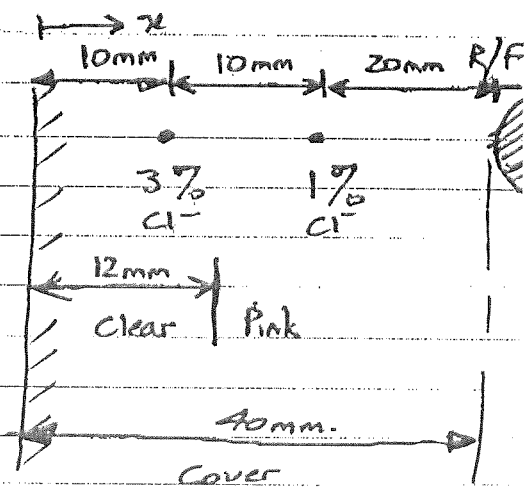 x
10mm 10mm 20mm R/F
3% 1%
Cl⁻ Cl⁻
12mm
Clear Pink
40mm.
Cover